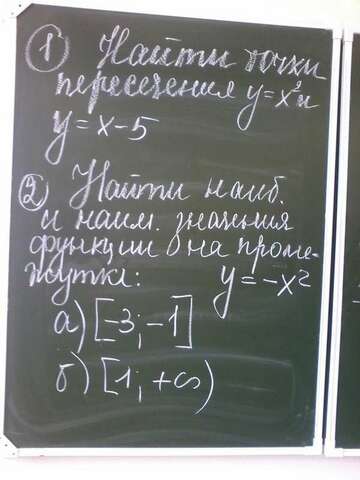 1 Найти точки
пересечения y=x² и
y=x-5
2 Найти наиб.
и наим. значения
функции на проме-
жутке: y=-x²
а) [-3; -1]
б) [1; +∞)